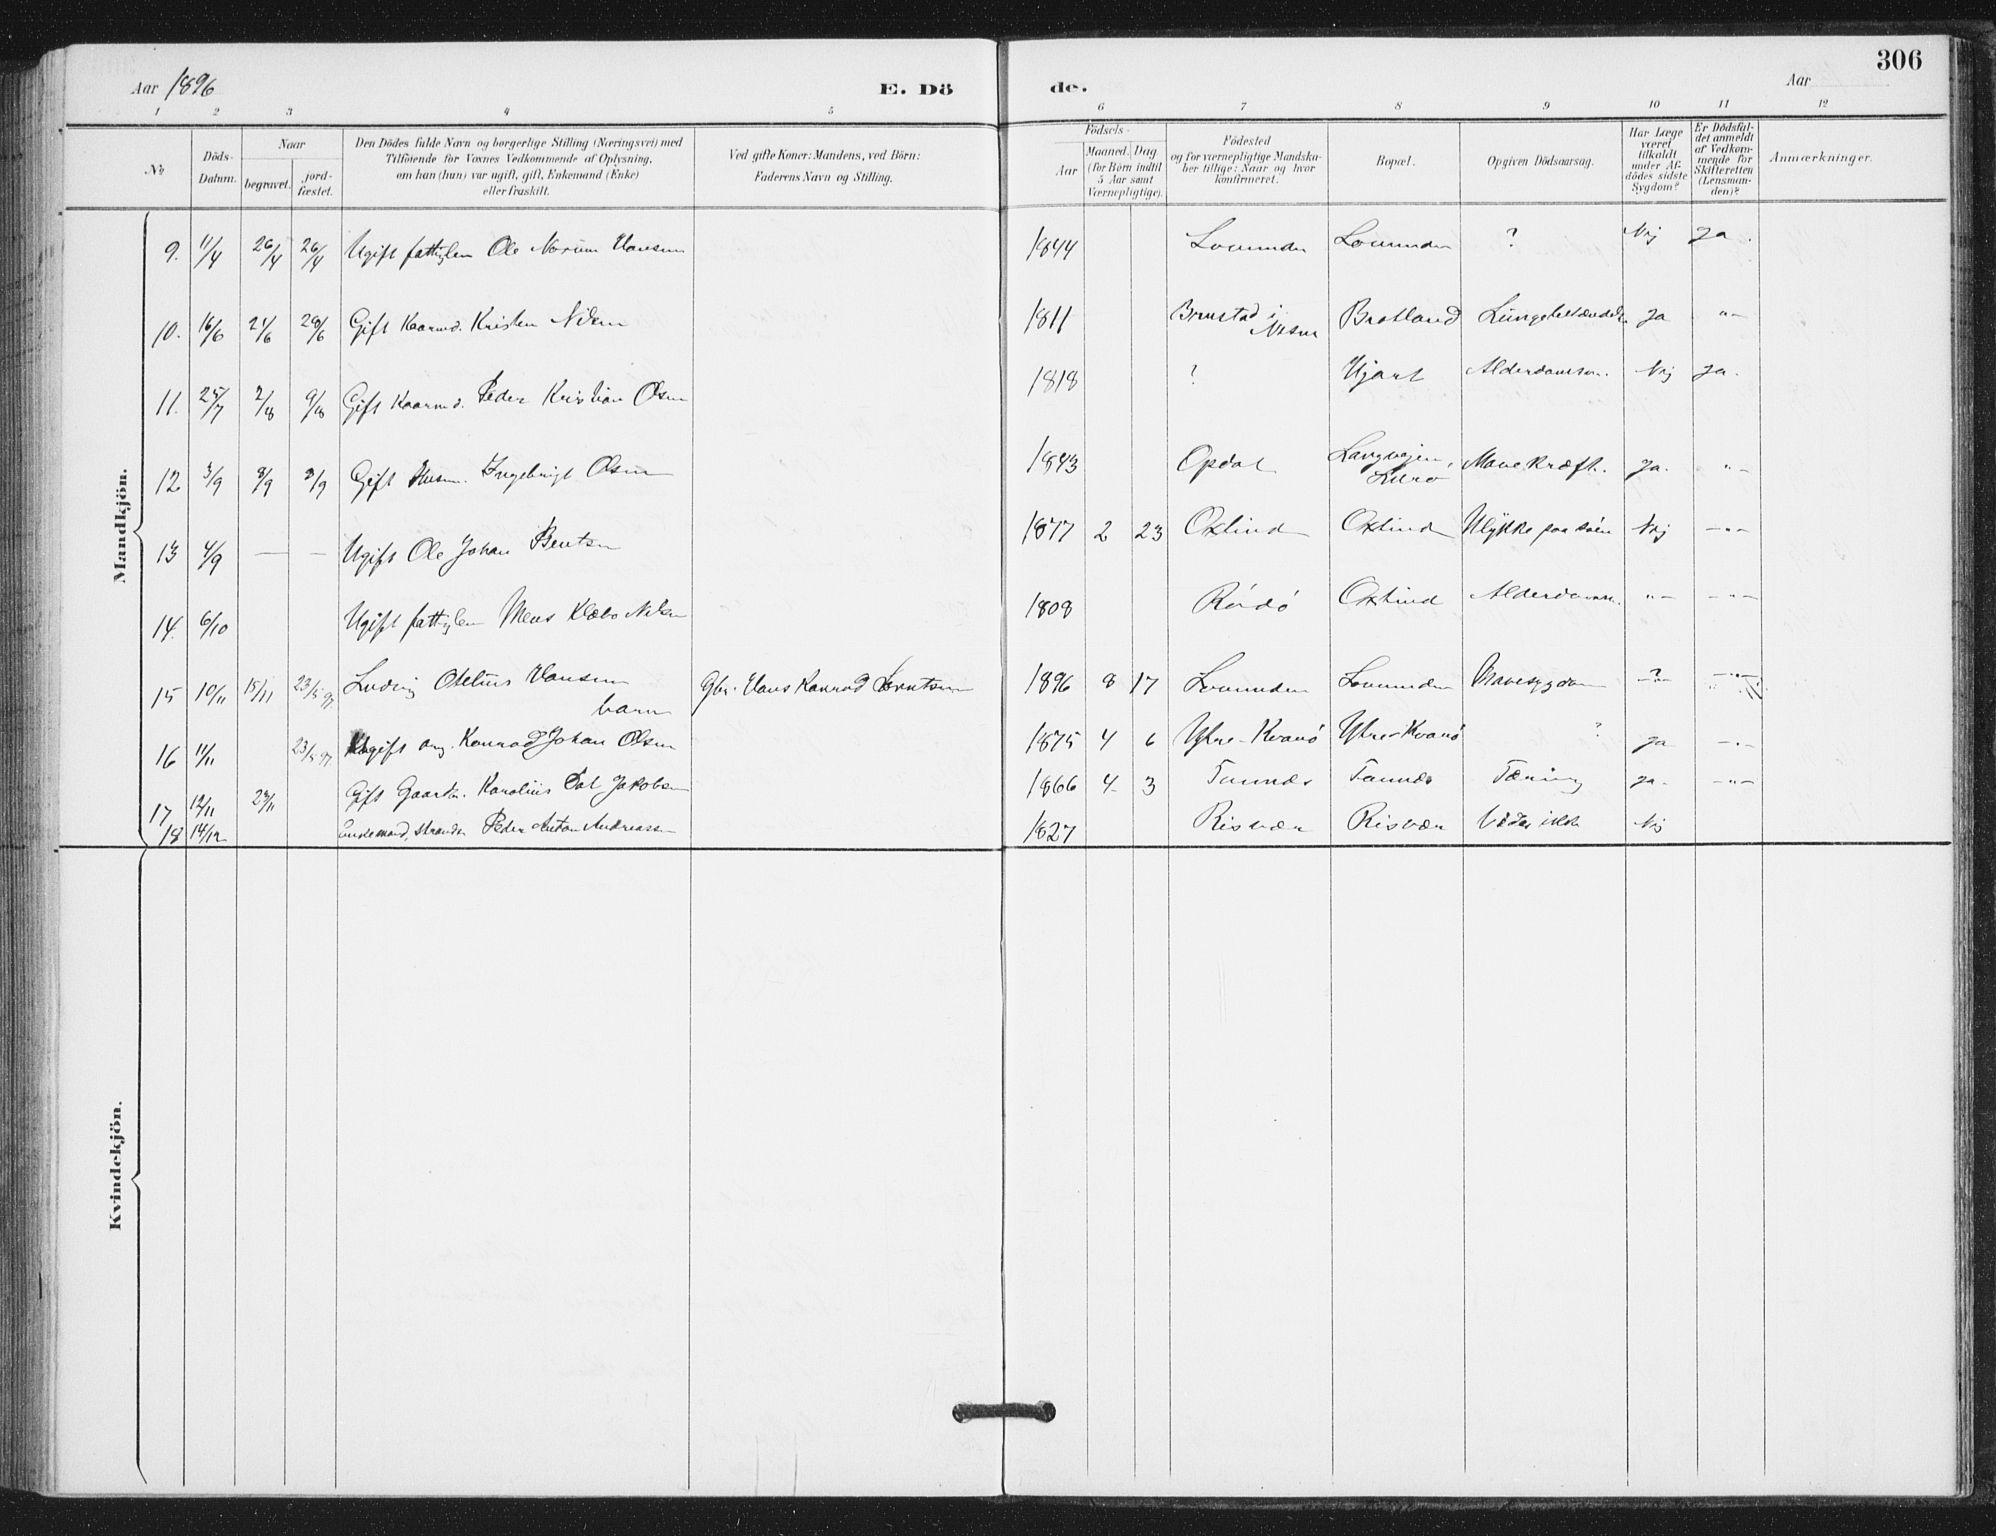 Aar 1896 E. Dö de. Aar 306
1 2 3 4 5 6 7 8 9 10 11 12
No. Döds-Datum. Naar begravet. jord-fæstet.
Den Dödes fulde Navn og borgerlige Stilling (Næringsvei) med
Tilföiende for Voxnes Vedkommende af Oplysning,
om han (hun) var ugift, gift, Enkemand (Enke)
eller fraskilt.
Ved gifte Koner: Mandens, ved Börn:
Faderens Navn og Stilling.
Födsels- Aar Maaned. Dag (for Börn indtil 5 Aar samt Værnepligtige).
Födested
og for værnepligtige Mandska-
ber tillige: Naar og hvor
konfirmeret.
Bopæl.
Opgiven Dödsaarsag.
Har Læge været tilkaldt under Af-dödes sidste Sygdom?
Er Dödsfal-det anmeldt af Vedkom-mende for Skifteretten (Lensman-den)?
Anmærkninger.
Mandkjön.
9. 11/4 26/4 26/4 Ugift fattiglem Ole Norum Hansen 1844 Lovunden Lovunden ? Nej Ja.
10. 16/6 21/6 28/6 Gift Kaarmd. Kristen Nilsen 1811 Brustad i Nesna Bratland Lungebetændelse Ja "
11. 25/7 2/8 9/8 Gift Kaarmd. Peder Kristian Olsen 1818 ? Hjart Alderdomssv. Nej Ja.
12 3/9 8/9 8/9 Gift Husm. Ingebrigt Olsen 1843 Opdal Langvejen, Lurø Mavekræft. Ja. "
13 4/9 — — Ugift Ole Johan Bentsen 1877 2 23 Oxtind Oxtind Ulykke paa søen Nej "
14. 6/10 Ugift fattiglem Mens Klæbo Nilsen 1808 Rødø Oxtind Alderdomssv. " "
15 10/11 15/11 23/5 97. Ludvig Otelius Hansen barn Gbr. Hans Konrad Berntsen 1896 8 17 Lovunden Lovunden Mavesygdom ? "
16 11/11 23/5 97. Ugift arb. Konrad Johan Olsen 1875 4 6 Ytre-Kvarø Ytre-Kvarø ? Ja "
17 12/11 23/11 Gift Gaardbr. Karolius Dal Jakobsen 1866 4 3 Tonnes Tonnes Tæring Ja. "
18 14/12 Enkemand, Strands. Peder Anton Andreassen 1827 Risvær Risvær Vides ikke Nej
Kvindekjön.